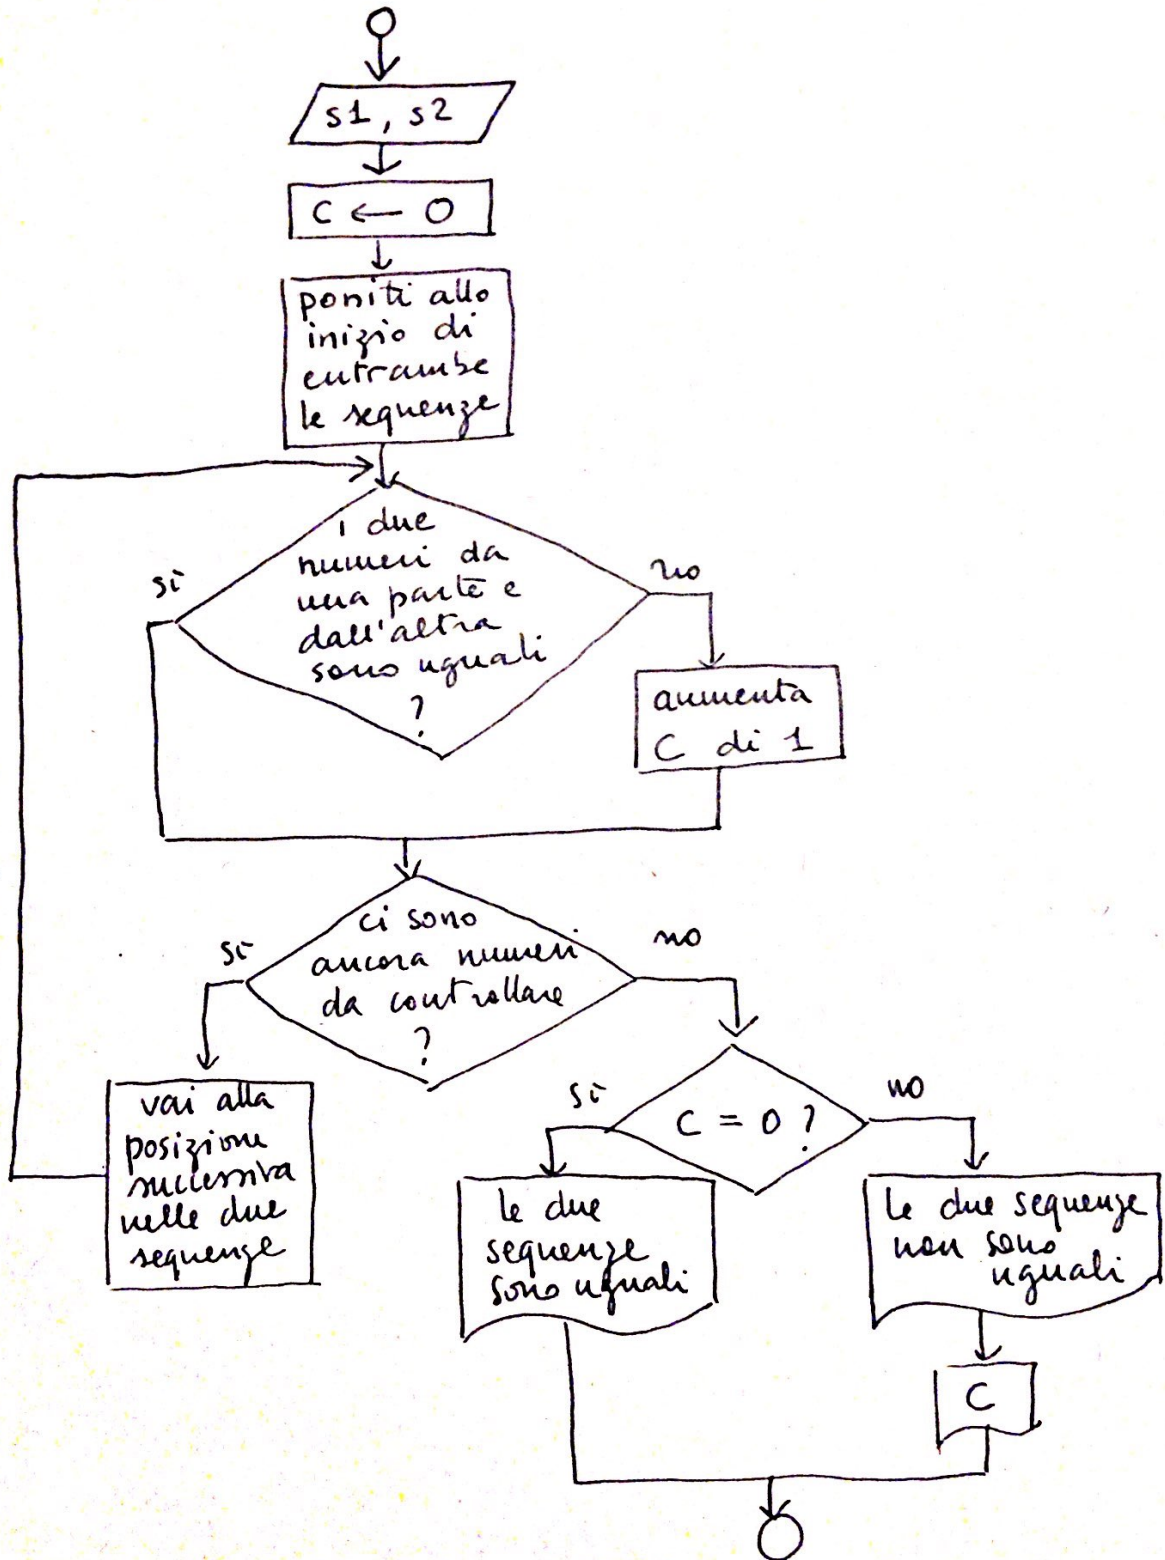 s1, s2
C ← 0
poniti allo
inizio di
entrambe
le sequenze
i due
numeri da
una parte e
dall'altra
sono uguali
?
sì
no
aumenta
C di 1
ci sono
ancora numeri
da controllare
?
sì
no
vai alla
posizione
successiva
nelle due
sequenze
C = 0 ?
sì
no
le due
sequenze
sono uguali
le due sequenze
non sono
uguali
C